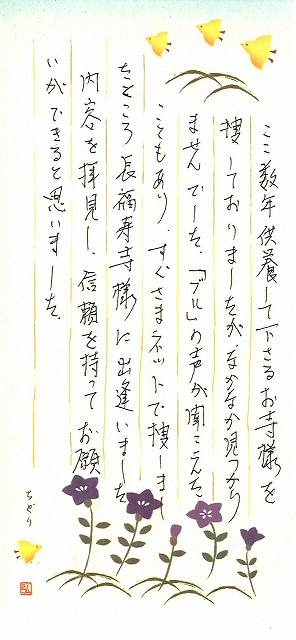 ここ数年供養して下さるお寺様を
捜しておりましたが、なかなか見つかり
ませんでした。「ブル」の声が聞こえた
こともあり、すぐさまネットで捜しまし
たところ長福寿寺様に出逢いました
内容を拝見し、信頼を持ってお願
いができると思いました。
ちどり